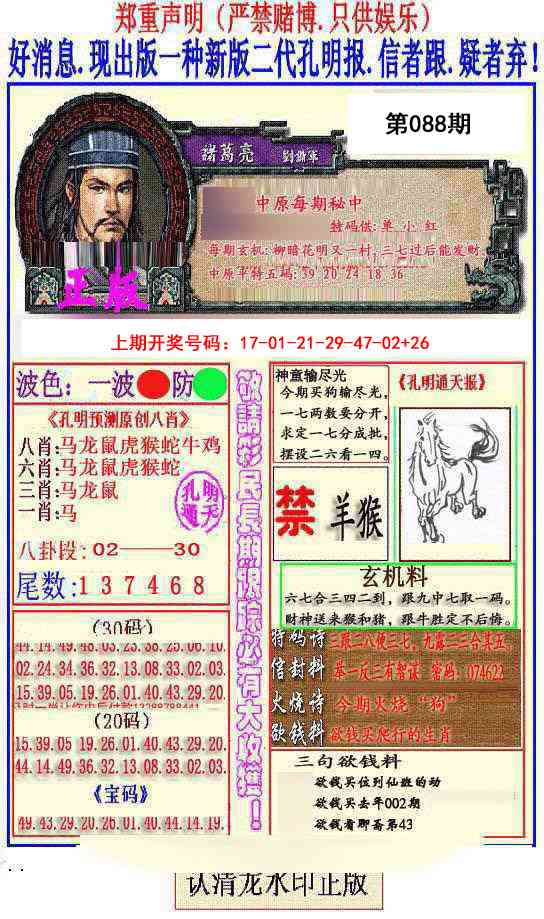 郑重声明（严禁赌博.只供娱乐）
好消息.现出版一种新版二代孔明报.信者跟.疑者弃!
第088期
諸葛亮
劉謝軍
中原每期秘中
特码供:单.小.红
每期玄机:柳暗花明又一村,三七过后能发财.
中原平特五码:39 20 24 18 36
正版
上期开奖号码：17-01-21-29-47-02+26
波色：一波 防
《孔明预测原创八肖》
八肖:马龙鼠虎猴蛇牛鸡
六肖:马龙鼠虎猴蛇
三肖:马龙鼠
一肖:马
孔明
通天
八卦段:02——30
尾数:137468
(30码)
44.14.49.48.03.23.38.25.06.10
02.24.34.36.32.13.08.33.02.03
15.39.05.19.26.01.40.43.29.20
(20码)
15.39.05 19.26.01.40.43.29.20.
44.14.49.36.32.13.08.33.02.03.
《宝码》
49.43.29.20.26.01.40.44.14.19.
敬請彩民長期跟踪必有大收獲!
神童输尽光
今期买狗输尽光,
一七两数要分开,
求定一七分成批,
摆设二六看一四。
《孔明通天报》
禁 羊猴
玄机料
六七合三四二到，跟九中七取一码。
财神送来猴和猪，跟牛胜定不后悔。
特码诗
信封料 举一反三有智谋 密码：074622
火烧诗 今期火烧“狗”
欲钱料 欲钱买爬行的生肖
三句欲钱料
欲钱买位到仙班的动
欲钱买去年002期
欲钱看聊斋第43
认清龙水印正版